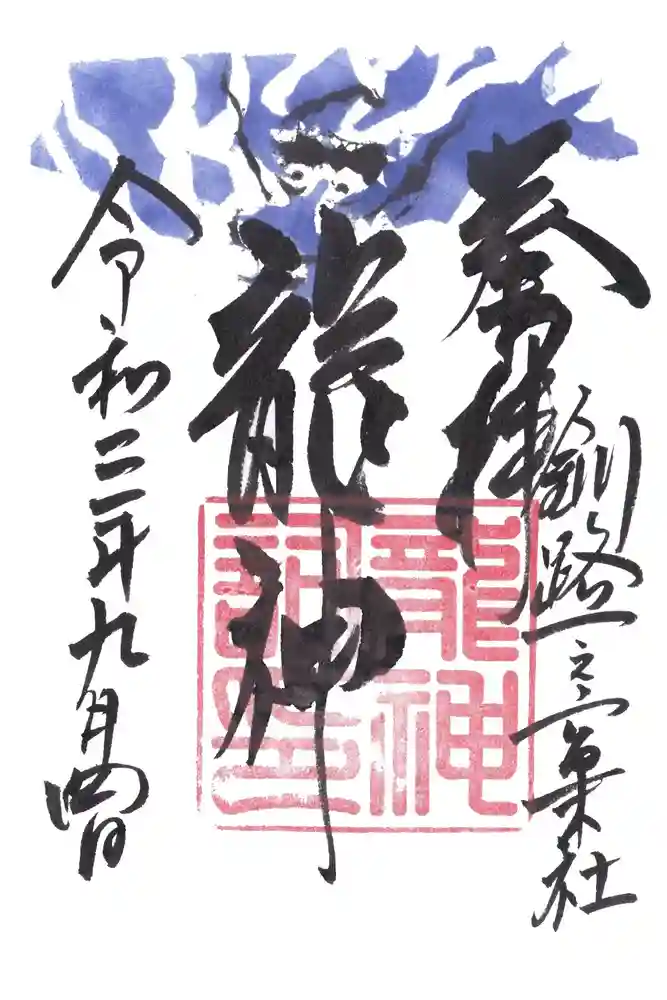 奉拝
釧路一之
社
龍神
龍神
令和二年九月四日